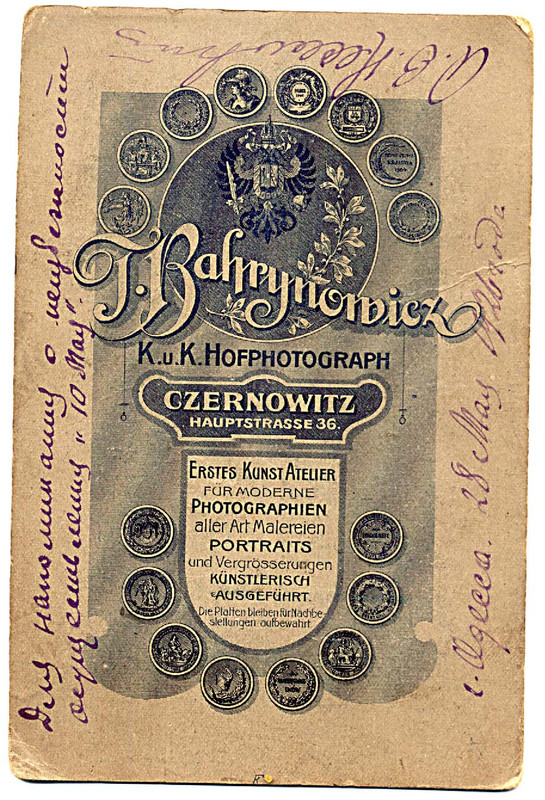 T. Bahrynowicz
K. u. K. HOFPHOTOGRAPH
CZERNOWITZ
HAUPTSTRASSE 36.
ERSTES KUNST ATELIER
FÜR MODERNE
PHOTOGRAPHIEN
aller Art Malereien
PORTRAITS
und Vergrösserungen
KÜNSTLERISCH
AUSGEFÜHRT.
Die Platten bleiben für Nachbe-
stellungen aufbewahrt
Для напоминания о неизбежности
осуществления "10 Мая".
г. Одесса. 28 Мая года